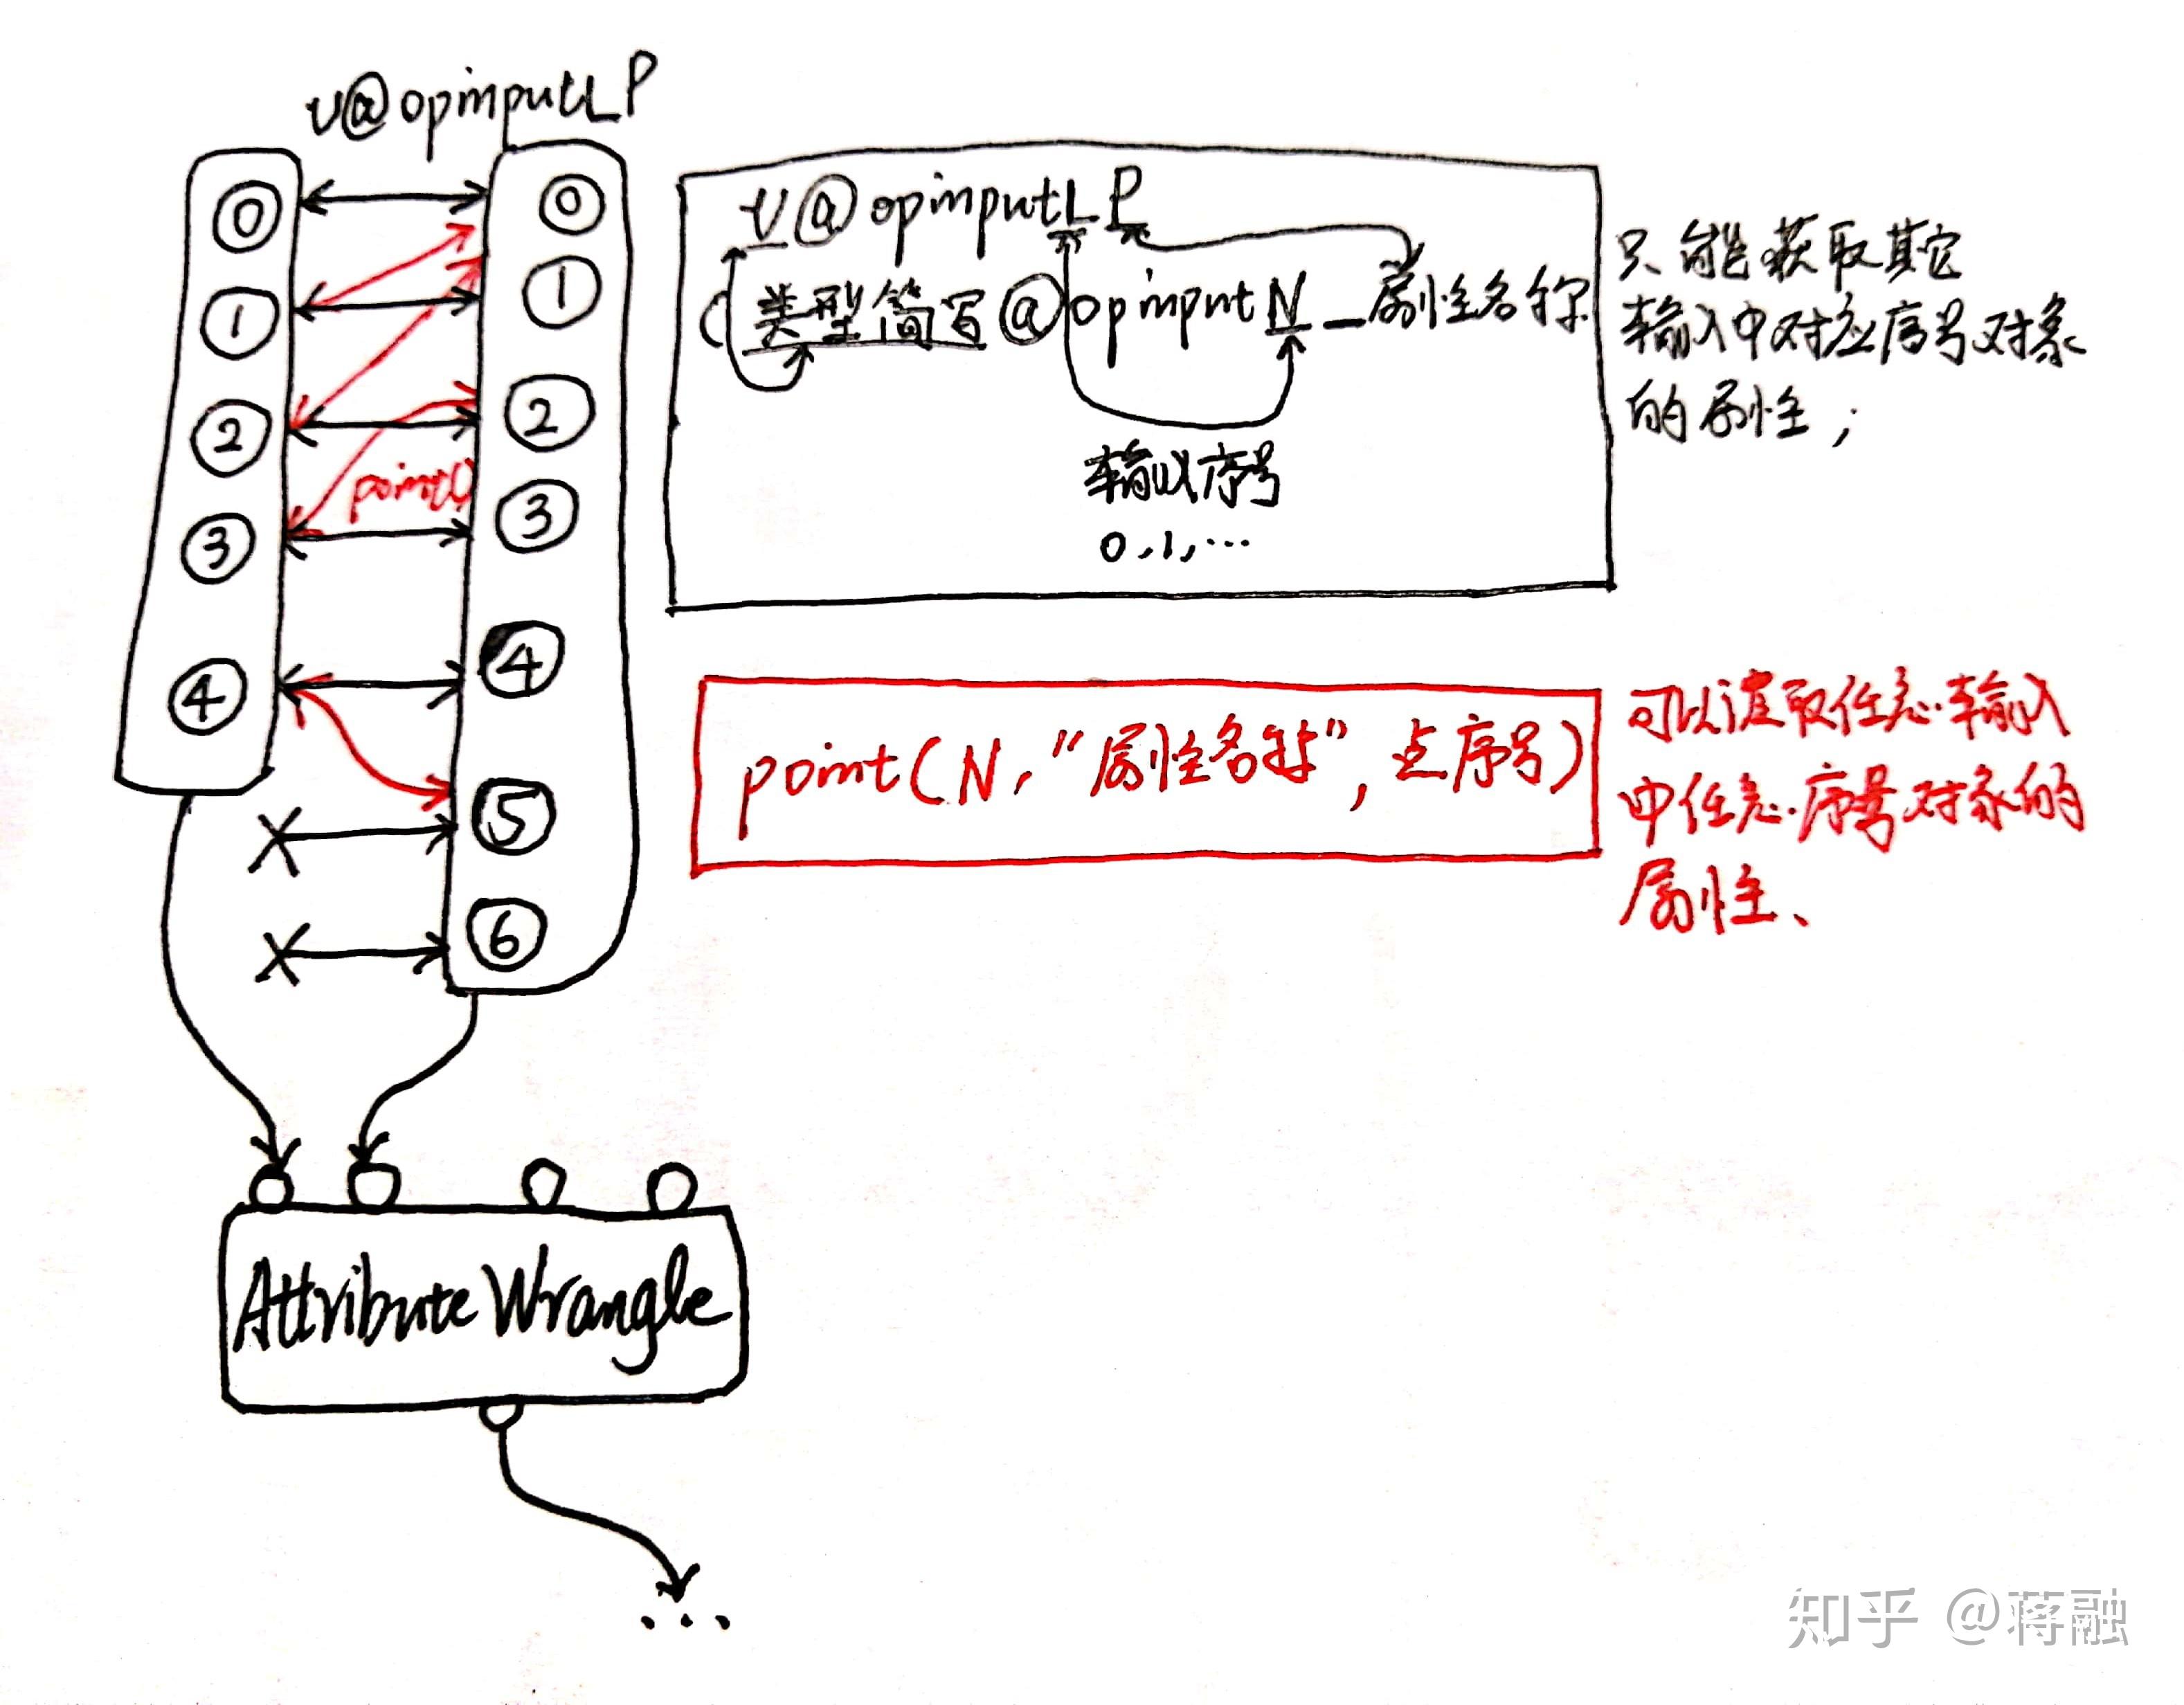 v@opinput1_P
0
0
1
1
2
2
point()
3
3
4
4
5
6
v@opinput1_P
类型简写@opinputN_属性名称
输入序号
0,1,…
只能获取其它
输入中对应序号对象
的属性；
point(N,"属性名称",点序号)
可以读取任意输入
中任意序号对象的
属性、
Attribute Wrangle
...
知乎 @蒋融